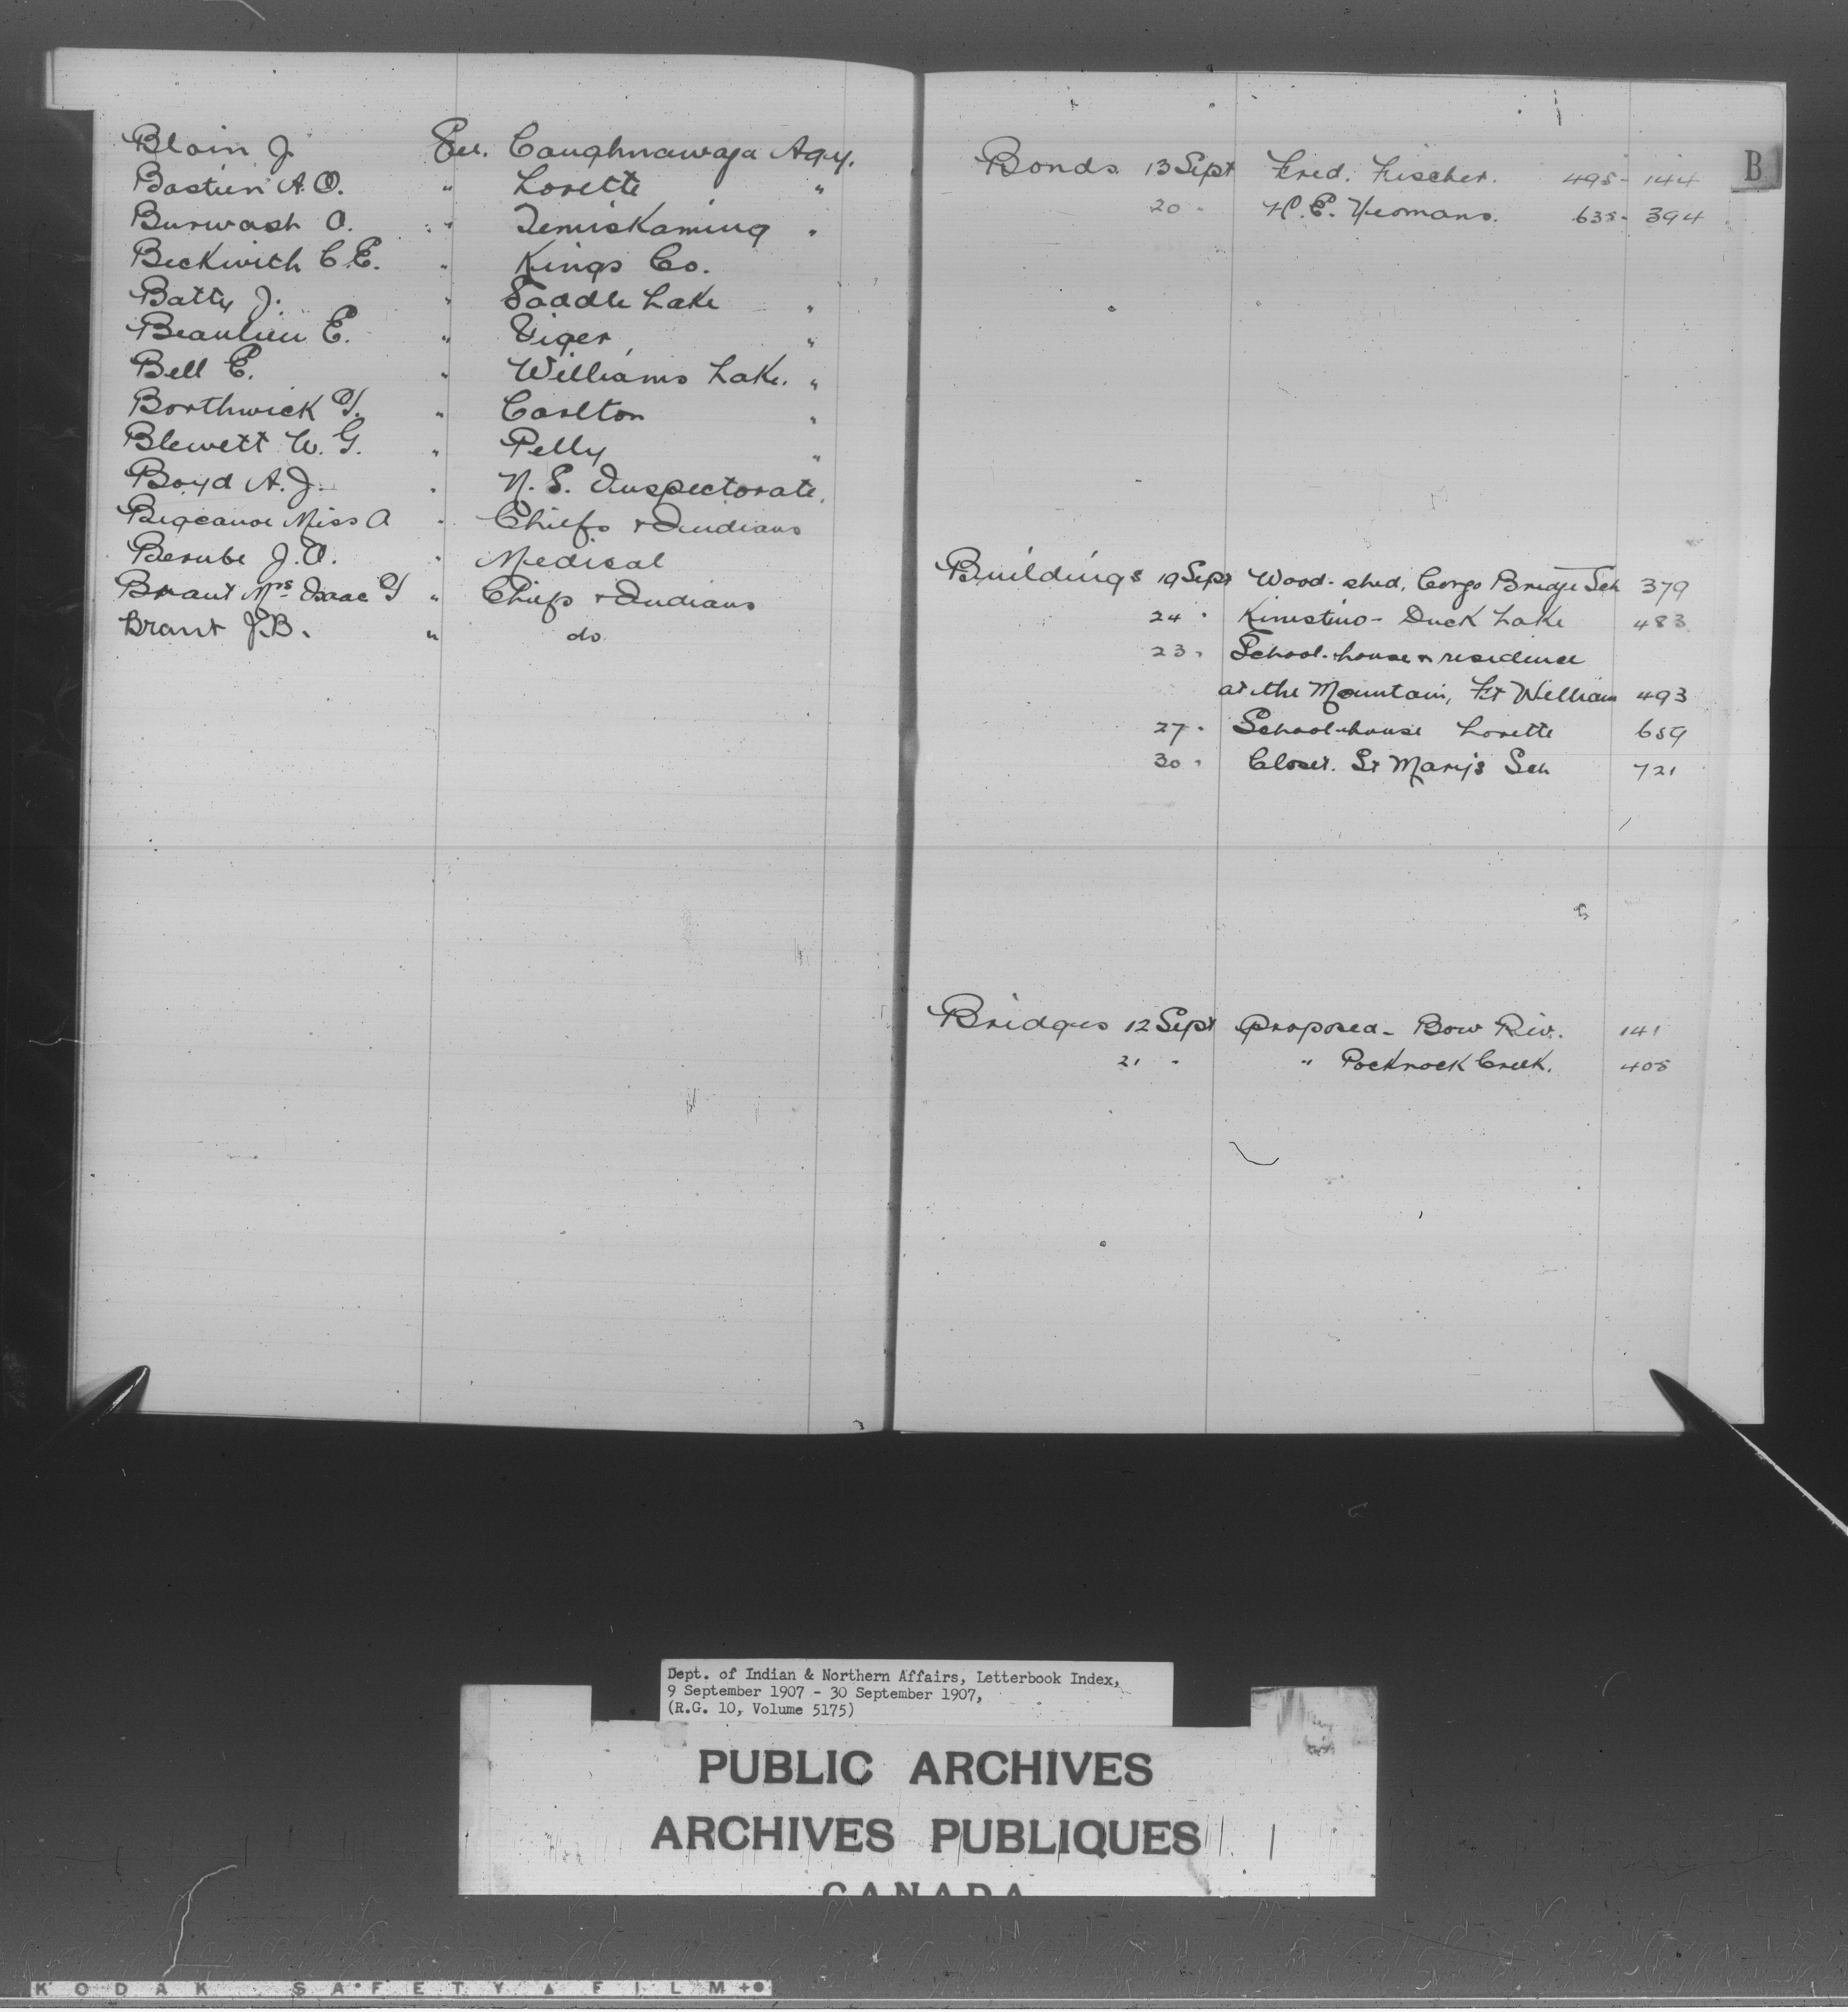 Blain J. See. Caughnawaga Agy.
Bastien A. O. " Lorette "
Burwash A. " Temiskaming "
Beckwith C. E. " Kings Co.
Batty J. " Saddle Lake "
Beaulieu E. " Viger "
Bell E. " Williams Lake. "
Borthwick T. " Carlton "
Blewett W. G. " Pelly "
Boyd A. J. " N. S. Inspectorate.
Bigcanoe Miss A " Chiefs & Indians
Berube J. O. " Medical
Brant Mrs Isaac T " Chiefs & Indians
Brant J. B. " do
B
Bonds 13 Sept Fred. Fischer. 495 - 144
20 " H. E. Yeomans. 635 - 394
Buildings 19 Sept Wood-shed, Bridge Sch 379
24 " Kinistino - Duck Lake 483
23 " School-house & residence
at the Mountain, Ft William 493
27 " School-house Lorette 659
30 " Closet. St Mary's Sch 721
Bridges 12 Sept Proposed - Bow Riv. 141
21 " " Pocknock Creek. 405
Dept. of Indian & Northern Affairs, Letterbook Index,
9 September 1907 - 30 September 1907,
(R.G. 10, Volume 5175)
PUBLIC ARCHIVES
ARCHIVES PUBLIQUES
CANADA
KODAK SAFETY FILM